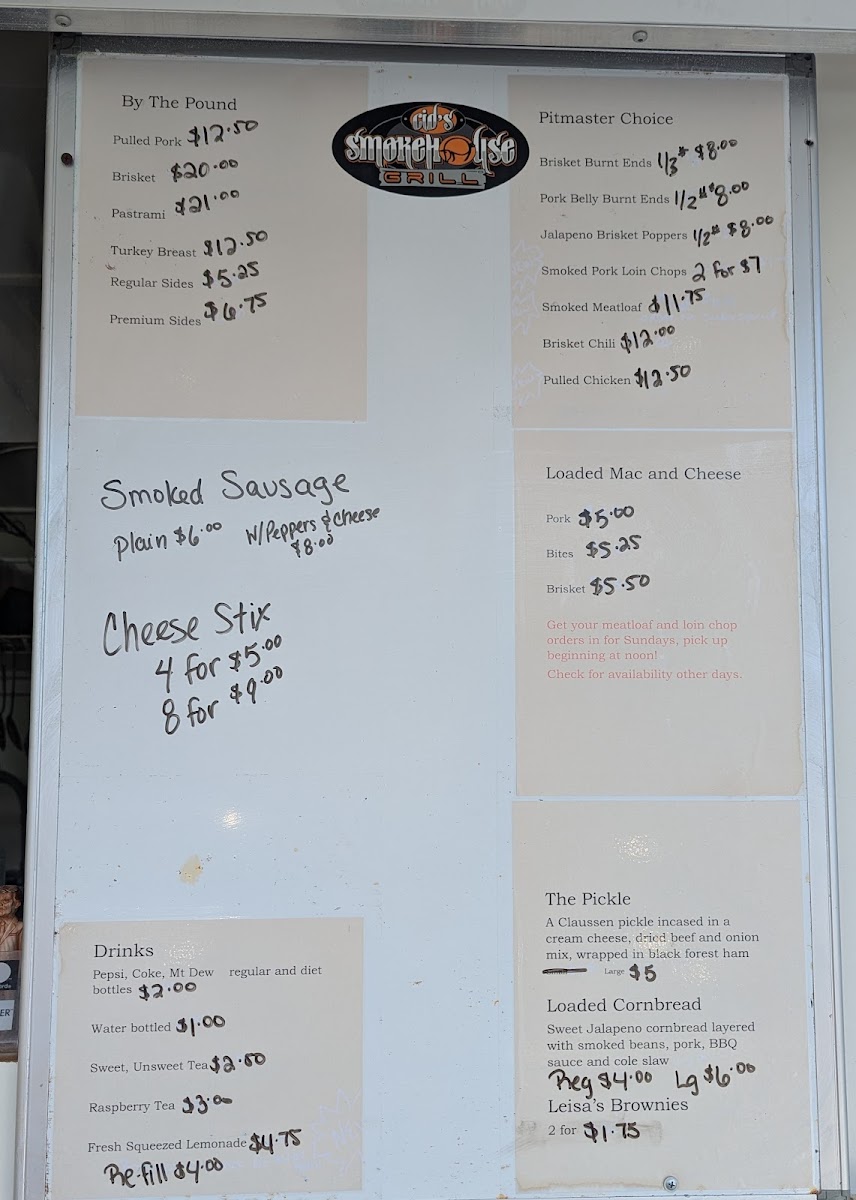 cid's
SMOKEHOUSE
GRILL
By The Pound
Pulled Pork $12.50
Brisket $20.00
Pastrami $21.00
Turkey Breast $12.50
Regular Sides $5.25
Premium Sides $6.75
Smoked Sausage
Plain $6.00 W/Peppers & Cheese
$8.00
Cheese Stix
4 for $5.00
8 for $9.00
Drinks
Pepsi, Coke, Mt Dew regular and diet
bottles $2.00
Water bottled $1.00
Sweet, Unsweet Tea $2.50
Raspberry Tea $3.00
Fresh Squeezed Lemonade $4.75
Re-fill $4.00
Pitmaster Choice
Brisket Burnt Ends 1/3# $8.00
Pork Belly Burnt Ends 1/2# $8.00
Jalapeno Brisket Poppers 1/2# $8.00
Smoked Pork Loin Chops 2 for $7
Smoked Meatloaf $11.75
Brisket Chili $12.00
Pulled Chicken $12.50
Loaded Mac and Cheese
Pork $5.00
Bites $5.25
Brisket $5.50
Get your meatloaf and loin chop
orders in for Sundays, pick up
beginning at noon!
Check for availability other days.
The Pickle
A Claussen pickle incased in a
cream cheese, dried beef and onion
mix, wrapped in black forest ham
Large $5
Loaded Cornbread
Sweet Jalapeno cornbread layered
with smoked beans, pork, BBQ
sauce and cole slaw
Reg $4.00 Lg $6.00
Leisa's Brownies
2 for $1.75